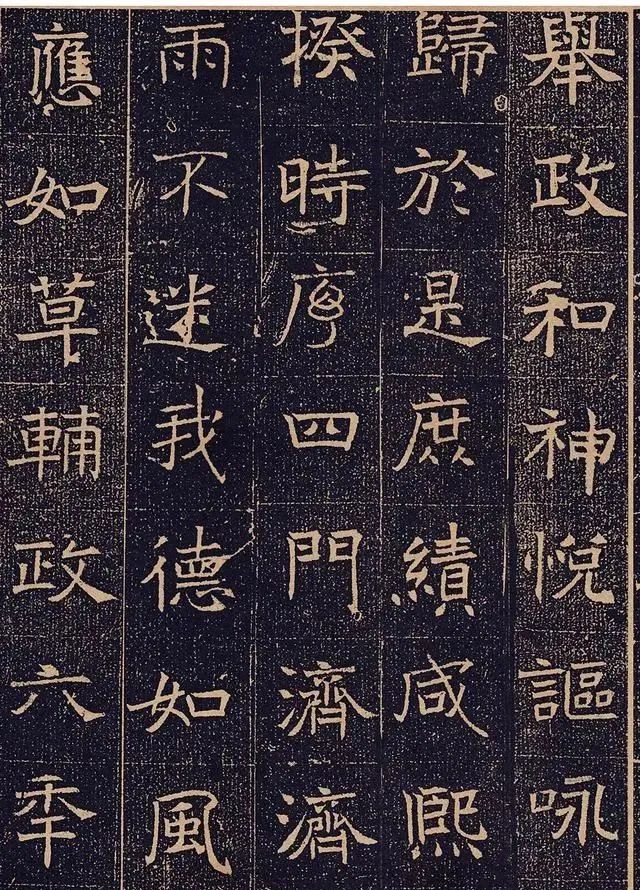 舉政和神悅謳咏
歸於是庶績咸熙
揆時序四門濟濟
雨不迷我德如風
應如草輔政六年